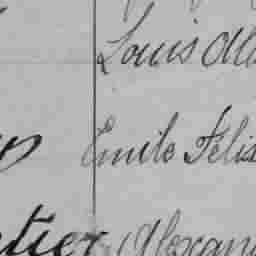 Louis Al
Emile Félix
tier Alexan